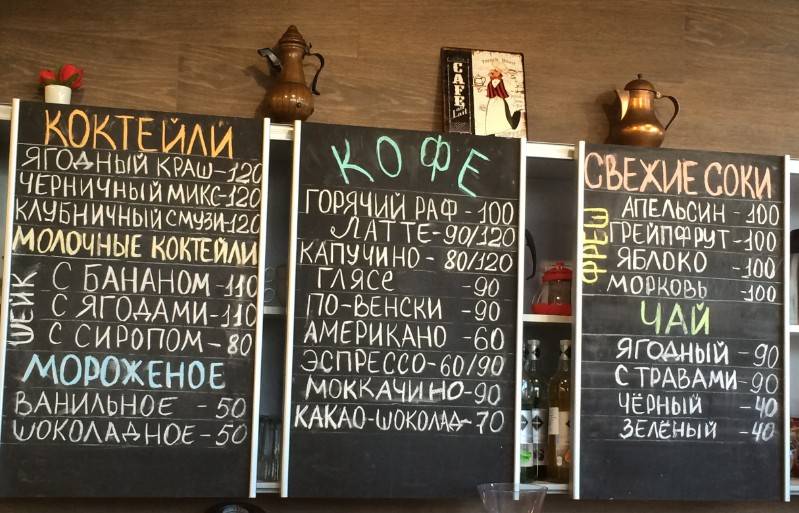 КОКТЕЙЛИ
ЯГОДНЫЙ КРАШ-120
ЧЕРНИЧНЫЙ МИКС-120
КЛУБНИЧНЫЙ СМУЗИ-120
МОЛОЧНЫЕ КОКТЕЙЛИ
ШЕЙК
С БАНАНОМ-110
С ЯГОДАМИ-110
С СИРОПОМ-80
МОРОЖЕНОЕ
ВАНИЛЬНОЕ -50
ШОКОЛАДНОЕ-50
CAFE
au Lait
КОФЕ
ГОРЯЧИЙ РАФ-100
ЛАТТЕ-90/120
КАПУЧИНО-80/120
ГЛЯСЕ -90
ПО-ВЕНСКИ -90
АМЕРИКАНО -60
ЭСПРЕССО-60/90
МОККАЧИНО-90
КАКАО-ШОКОЛАД-70
СВЕЖИЕ СОКИ
ФРЕШ
АПЕЛЬСИН-100
ГРЕЙПФРУТ-100
ЯБЛОКО -100
МОРКОВЬ -100
ЧАЙ
ЯГОДНЫЙ -90
С ТРАВАМИ-90
ЧЁРНЫЙ -40
ЗЕЛЁНЫЙ -40